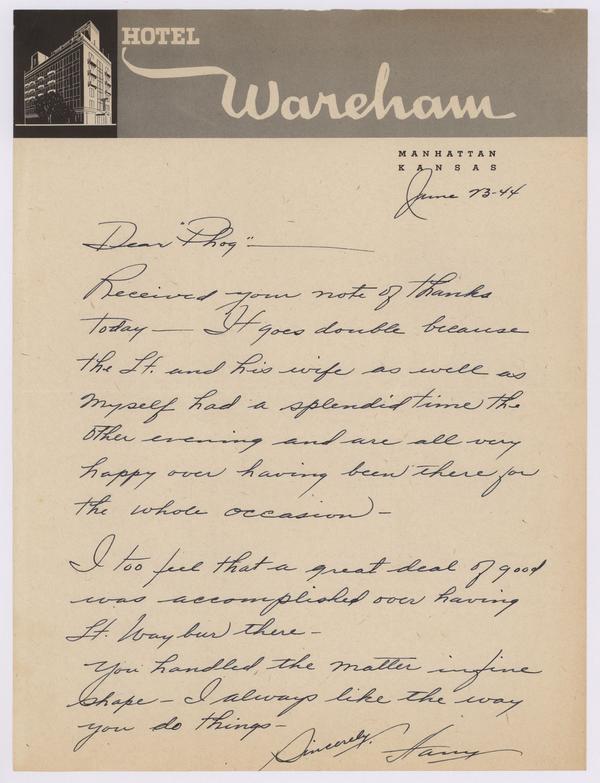 HOTEL
Wareham
MANHATTAN
KANSAS
June 23-44
Dear "Phog" —
Received your note of thanks
today — It goes double because
the Lt. and his wife as well as
myself had a splendid time the
other evening and are all very
happy over having been there for
the whole occasion —
I too feel that a great deal of good
was accomplished over having
Lt. Waybur there —
You handled the matter in fine
shape — I always like the way
you do things —
Sincerely, Harry